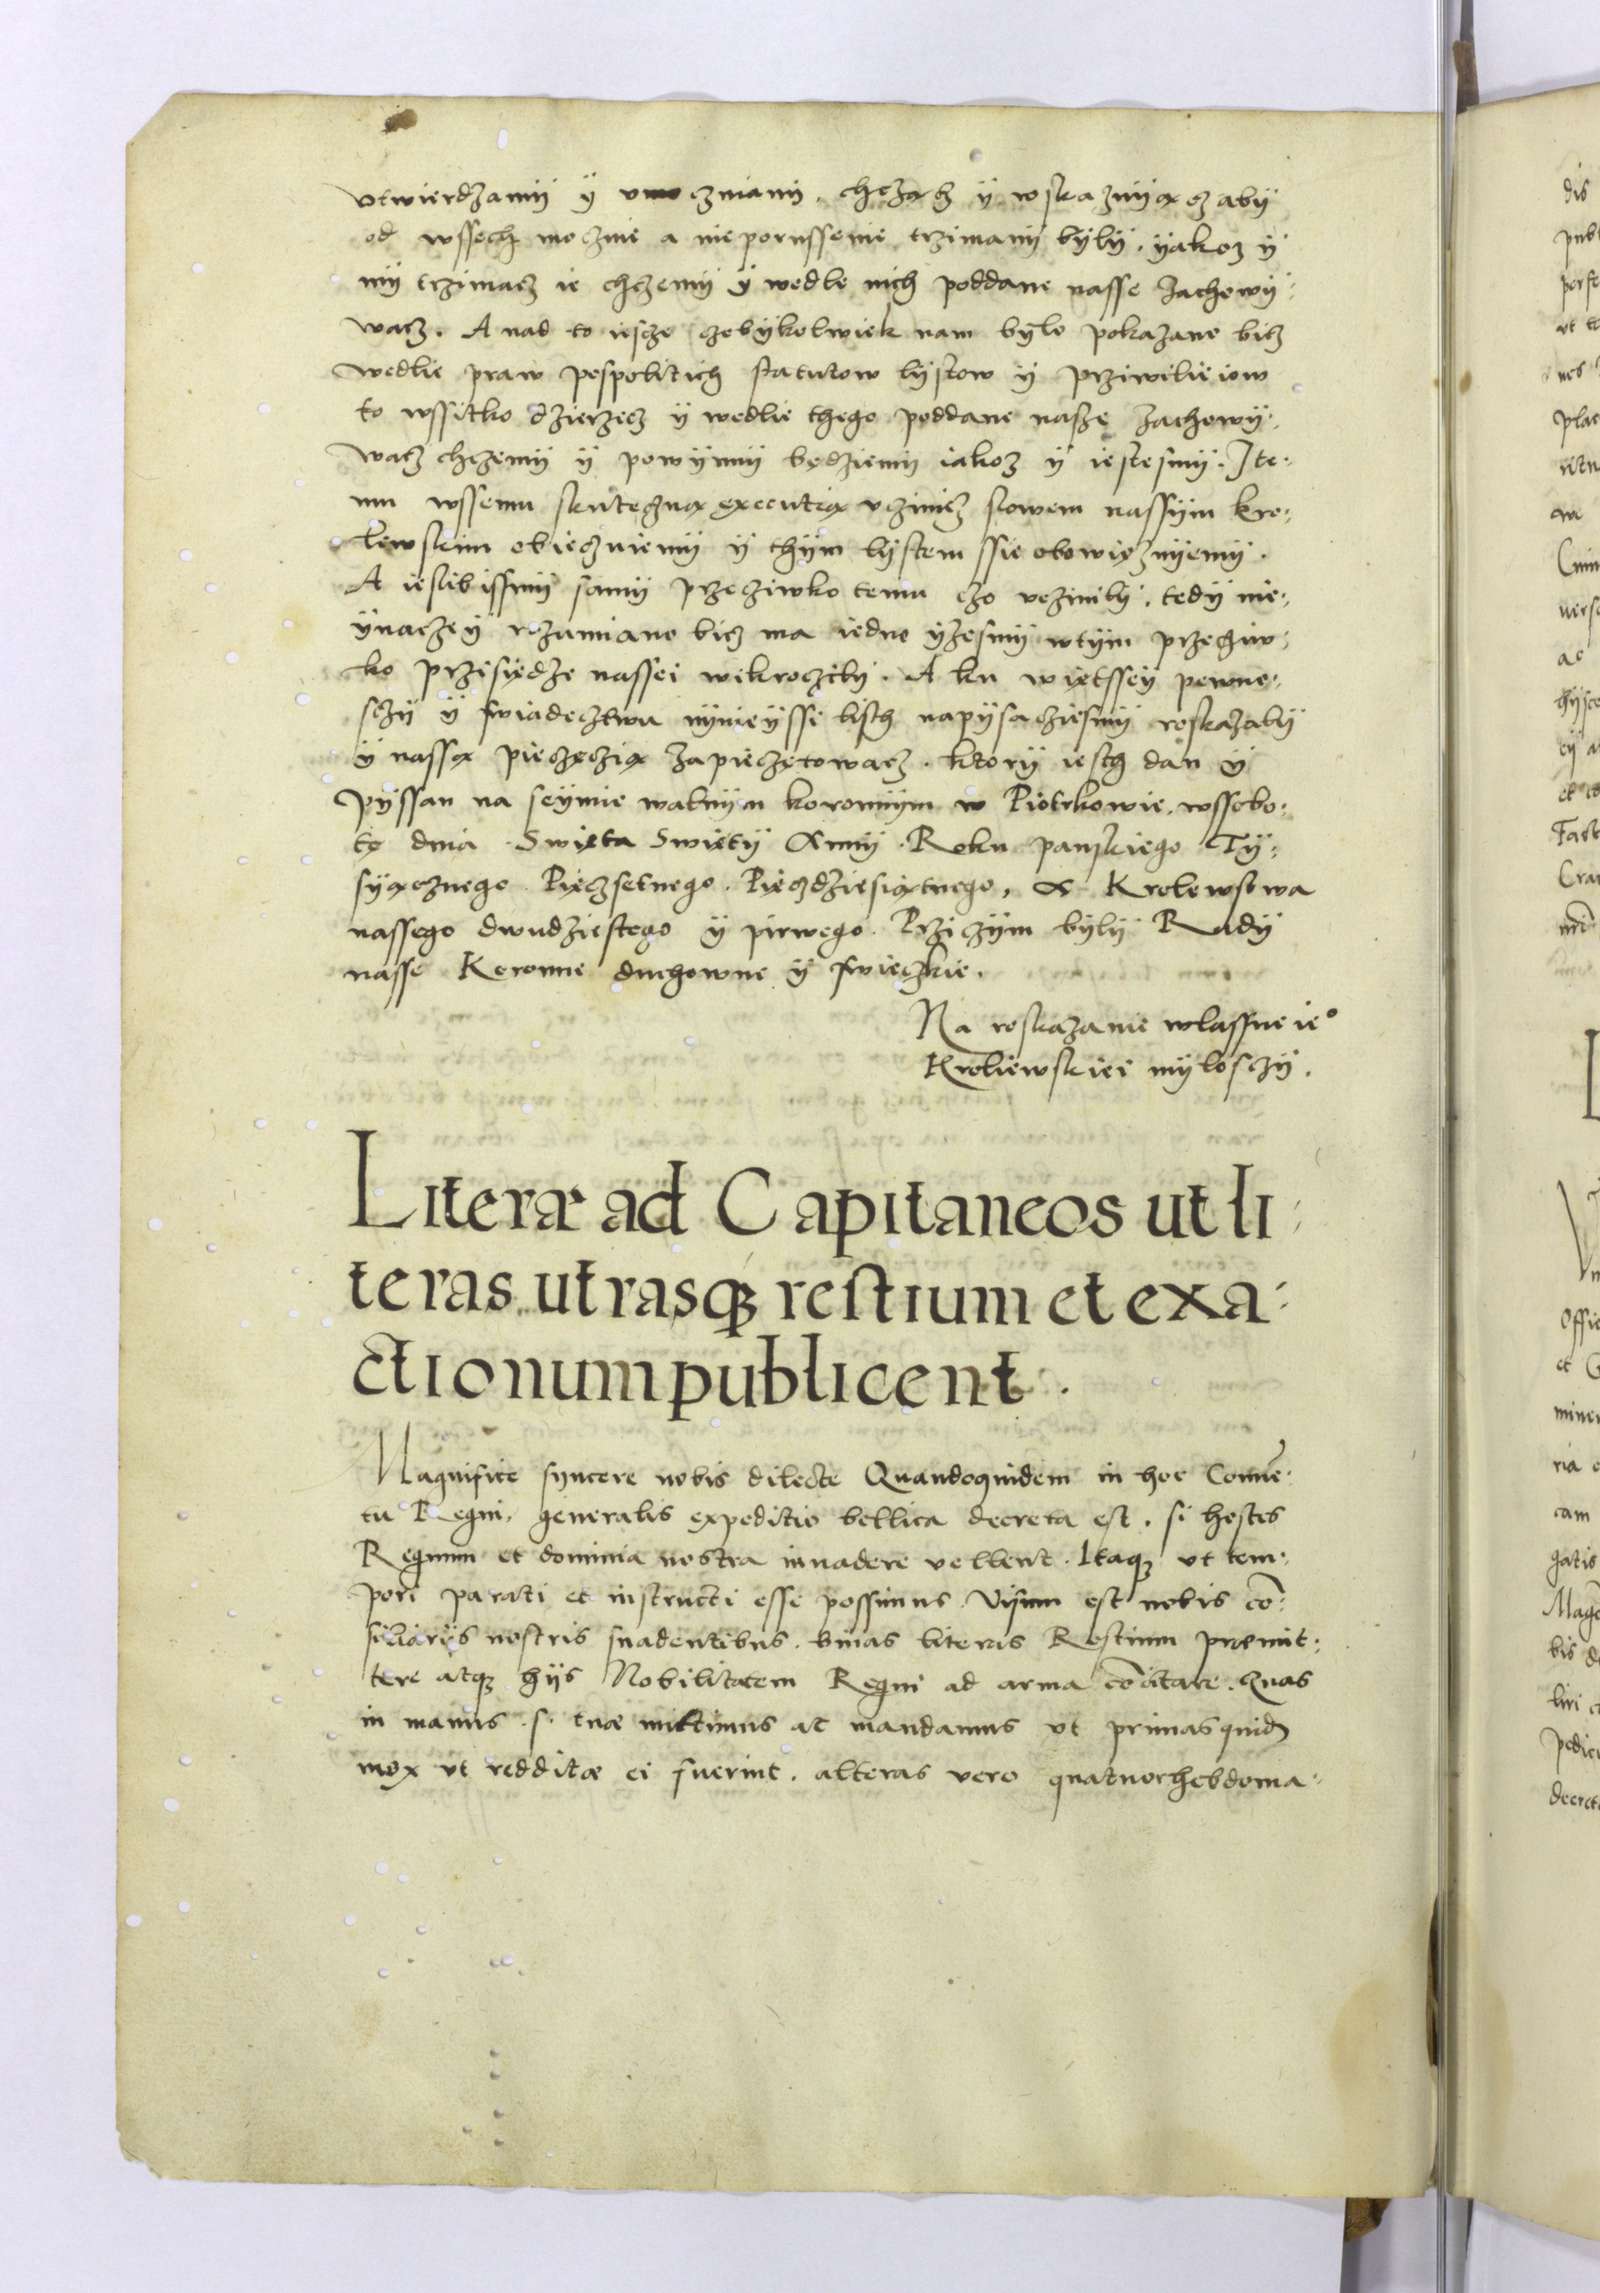 vtwierdzamÿ ÿ vmoczniamÿ, chczącz ÿ wskazuÿącz abÿ
od wssech mocznie a nieporusssenie trzimanÿ bÿlÿ, ÿakoz ÿ
mÿ trzimacz ie chczemÿ ÿ wedle nich poddane nasse zachowÿ-
wacz. A nad to iescze czobÿkolwiek nam bÿlo pokazano bicz
wedlie praw pospolitich statutow lÿstow ÿ prziwilieiow
to wssitko dzierzecz ÿ wedlie thego poddane nasze zachowÿ-
wacz chczemÿ ÿ powÿnnÿ będziemÿ iakoz ÿ iestesmÿ. I te-
mu wssemu skuteczną executią vczinicz slowem nassÿm kro-
lewskim obieczuiemÿ ÿ thÿm lÿstem ssie obowięzuÿemÿ.
A ieslibissmÿ samÿ przecziwko temu czo vczinilÿ, tedÿ nie-
ÿnaczeÿ rozumiano bicz ma iedno ÿzesmÿ wtÿm przeciw-
ko przisiędze nassei wikroczilÿ. A ku więtsseÿ pewno-
sczÿ ÿ swiadecztwu nÿnieÿssi listh napÿsacziesmÿ roskazalÿ
ÿ nassą pieczęczią zapieczętowacz. ktorÿ iesth dan ÿ
pÿssan na seÿmie walnÿm koronnÿm w Piotrkowie. wssobo-
tę dnia Swięta Swiętÿ Annÿ. Roku panskiego Tÿ-
sÿącznego Pięczsetnego. Pięczdziesiątnego, A Krolewstwa
nassego dwudziestego ÿ pirwego. Prziczÿm bÿlÿ Radÿ
nasse Koronne duchowne ÿ swieczkie.
Na roskazanie wlassne ie°
Kroliewskiei mÿlosczÿ.
Literæ ad Capitaneos ut li-
teras utrasqȝ restium et exa-
ctionum publicent.
Magnifice syncere nobis dilecte Quandoquidem in hoc Conuē-
tu Regni, generalis expeditio bellica decreta est, si hostes
Regnum et dominia nostra inuadere vellent. Itaqȝ vt tem-
pori parati et instructi esse possimus. Visum est nobis cō-
siliarijs nostris suadentibus, binas literas Restium præmit-
tere atqȝ hijs Nobilitatem Regni ad arma cōcitare. Quas
in manus s. tuæ mittimus ac mandamus vt primas quidē
mox vt redditæ ei fuerint, alteras vero quatuor hebdoma-